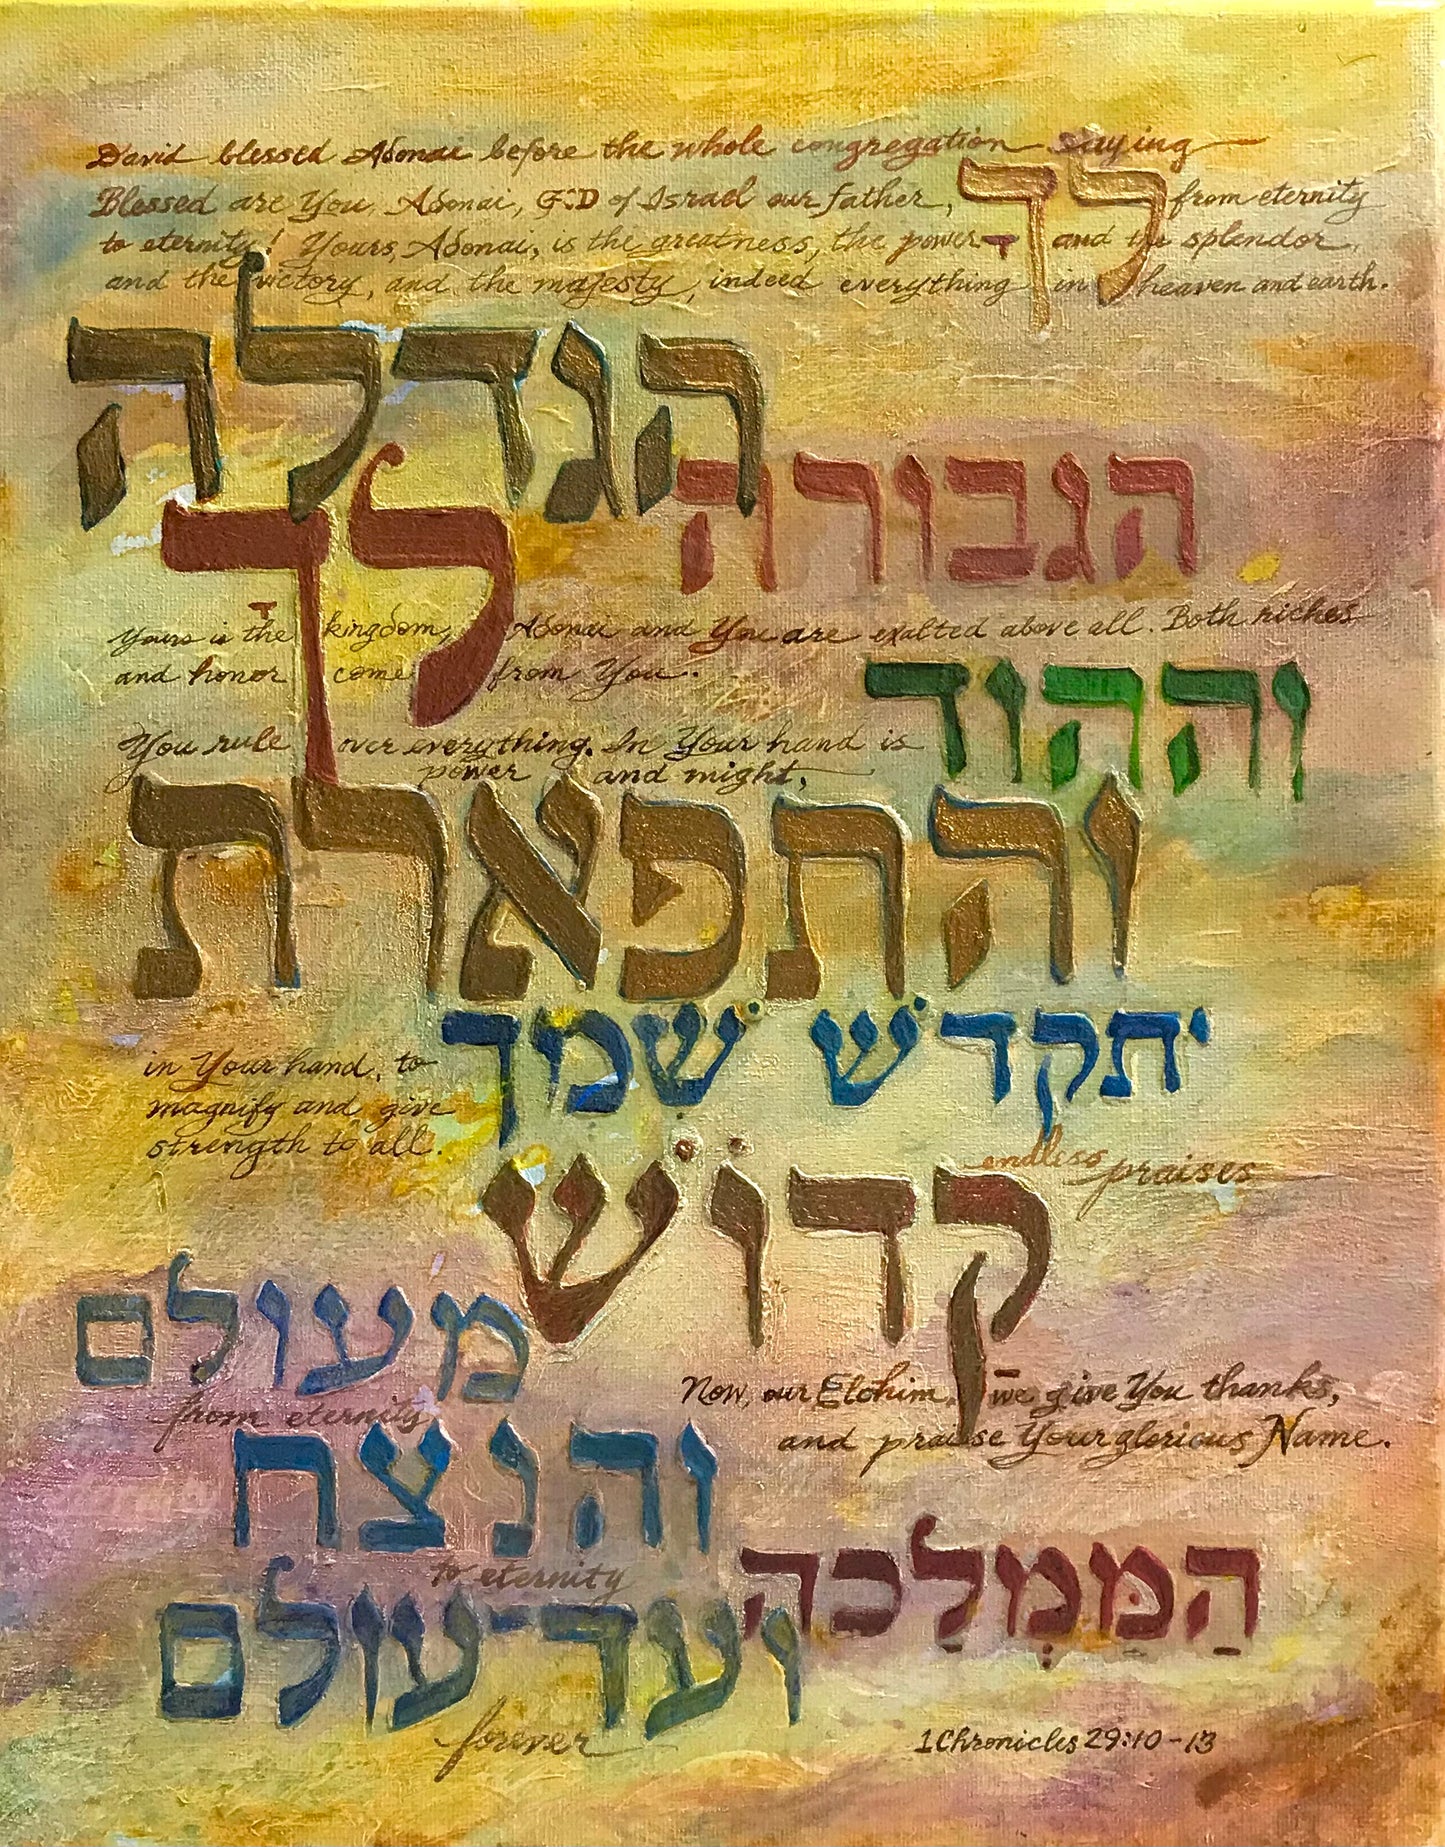 David blessed Adonai before the whole congregation saying
Blessed are You, Adonai, G-D of Israel our father, from eternity
לך
to eternity! Yours, Adonai, is the greatness, the power and the splendor,
and the victory, and the majesty, indeed everything in heaven and earth.
הגדלה
הגבורה
לך
Yours is the kingdom, Adonai and You are exalted above all. Both riches
and honor come from You.
וההוד
You rule over everything. In Your hand is
power and might,
והתפארת
יתקדשׁ שׁמך
in Your hand, to
magnify and give
strength to all.
endless praises
קדושׁ
מעולם
from eternity
Now, our Elohim, we give You thanks,
and praise Your glorious Name.
והנצח
to eternity
הַמַּמְלַכה
ועד־עולם
forever
1 Chronicles 29:10-13